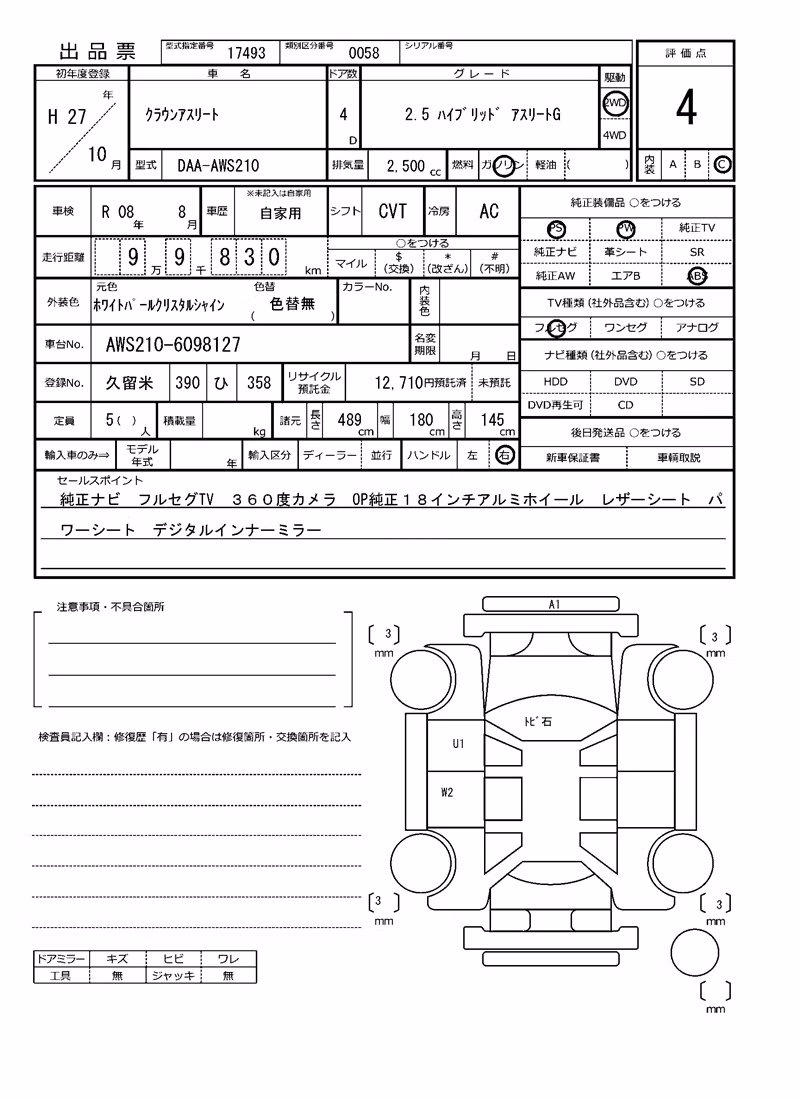 出品票
型式指定番号 17493 類別区分番号 0058 シリアル番号
評価点
初年度登録 車名 ドア数 グレード 駆動
H 27 年 10 月 クラウンアスリート 4 D 2.5 ハイブリッド アスリートG 2WD 4WD
4
型式 DAA-AWS210 排気量 2,500 cc 燃料 ガソリン 軽油 ( )
内装 A B C
車検 R 08 年 8 月 車歴 ※未記入は自家用 自家用 シフト CVT 冷房 AC
純正装備品 ○をつける
PS PW 純正TV
純正ナビ 革シート SR
純正AW エアB ABS
走行距離 9 万 9 千 8 3 0 km
○をつける
マイル $ (交換) * (改ざん) # (不明)
外装色 元色 ホワイトパールクリスタルシャイン 色替 ( 色替無 ) カラーNo. 内装色
TV種類(社外品含む)○をつける
フルセグ ワンセグ アナログ
車台No. AWS210-6098127 名変期限 月 日
ナビ種類(社外品含む)○をつける
HDD DVD SD
DVD再生可 CD
登録No. 久留米 390 ひ 358 リサイクル預託金 12,710円預託済 未預託
定員 5( ) 人 積載量 kg 諸元 長さ 489 cm 幅 180 cm 高さ 145 cm
後日発送品 ○をつける
新車保証書 車輌取説
輸入車のみ⇒ モデル年式 年 輸入区分 ディーラー 並行 ハンドル 左 右
セールスポイント
純正ナビ フルセグTV 360度カメラ OP純正18インチアルミホイール レザーシート パ
ワーシート デジタルインナーミラー
注意事項・不具合箇所
検査員記入欄:修復歴「有」の場合は修復箇所・交換箇所を記入
ドアミラー キズ ヒビ ワレ
工具 無 ジャッキ 無
A1
[ 3 ] mm
[ 3 ] mm
トビ石
U1
W2
[ 3 ] mm
[ 3 ] mm
[ ] mm